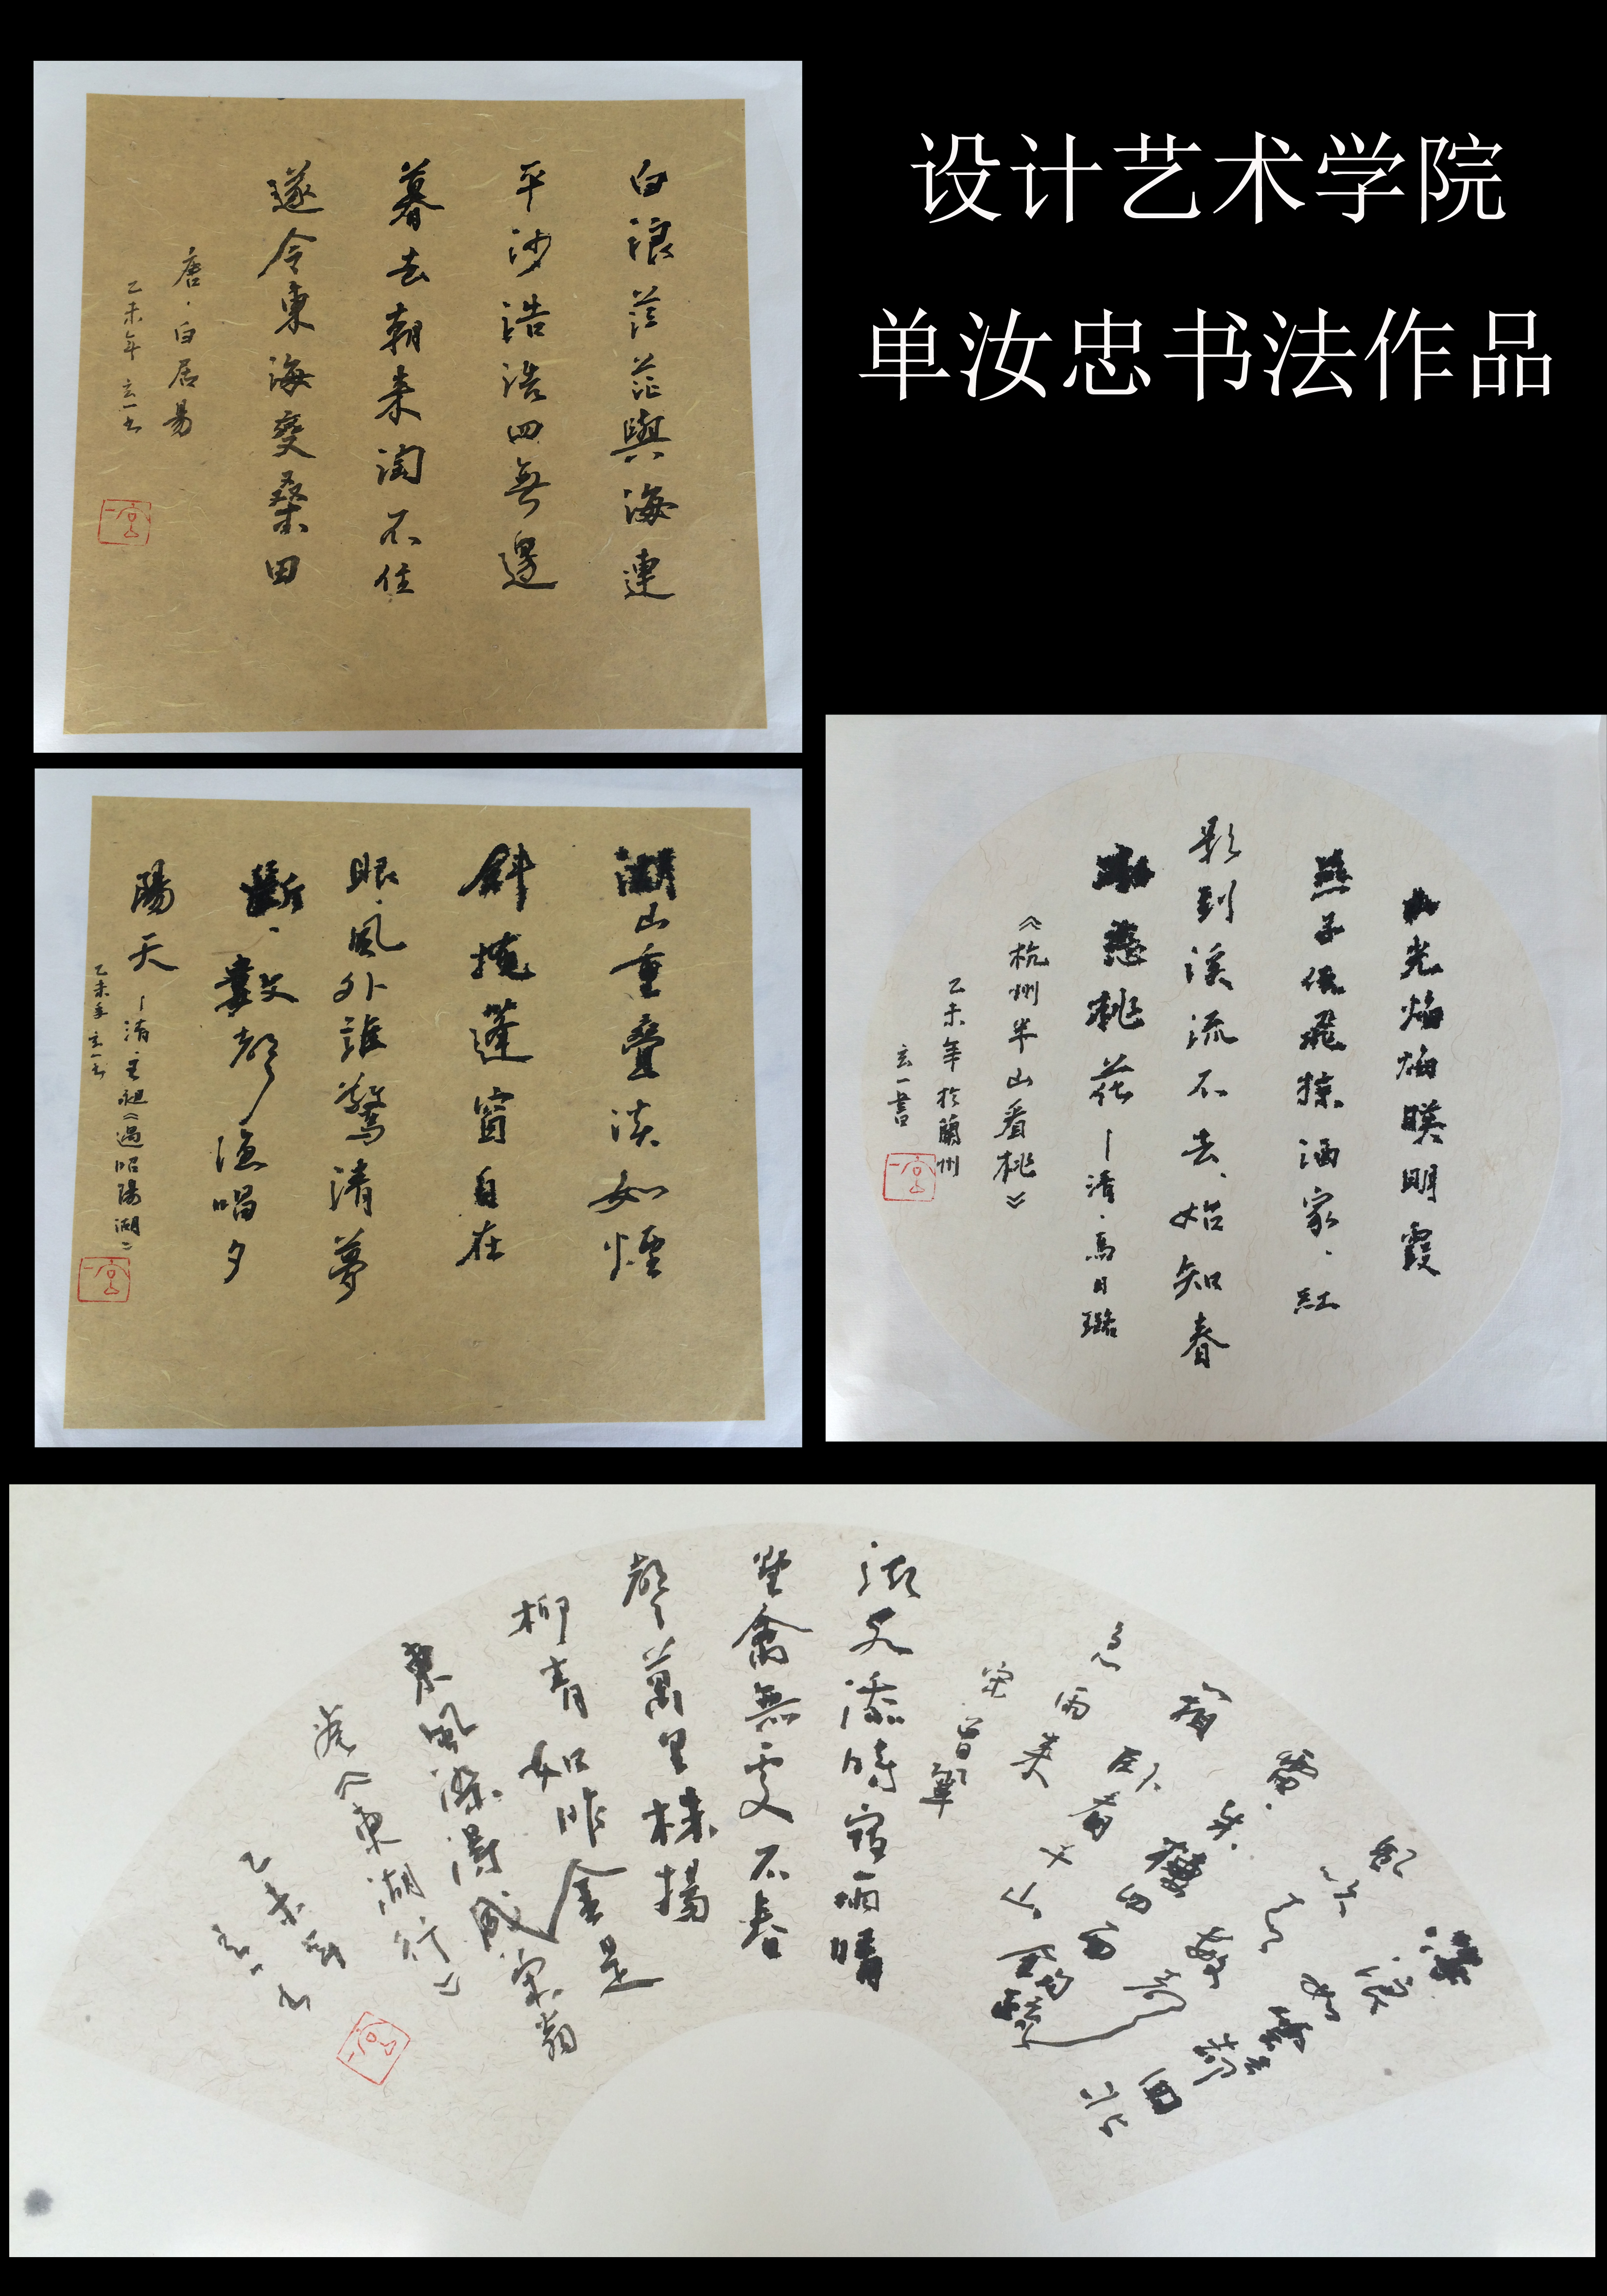 设计艺术学院
单汝忠书法作品
白浪茫茫與海連
平沙浩浩四無邊
暮去朝来淘不住
遂令東海變桑田
唐·白居易
乙未年玄一书
湖山重疊淡如煙
斜掩蓬窗自在
眼、風外誰驚清夢
斷、數聲漁唱夕
陽天—清·王昶《過昭陽湖》
乙未年玄一书
山光焰焰映明霞
燕子低飛掠酒家、紅
影到溪流不去、始知春
水戀桃花—清·馬日璐
《杭州半山看桃》
乙未年於蘭州
玄一書
急雨来
宋曾鞏
添時宿雨晴
野禽無處不春
聲萬里株楊
柳青如昨金是
東風染得成宋翁
卷《東湖行》
乙未年
玄一书